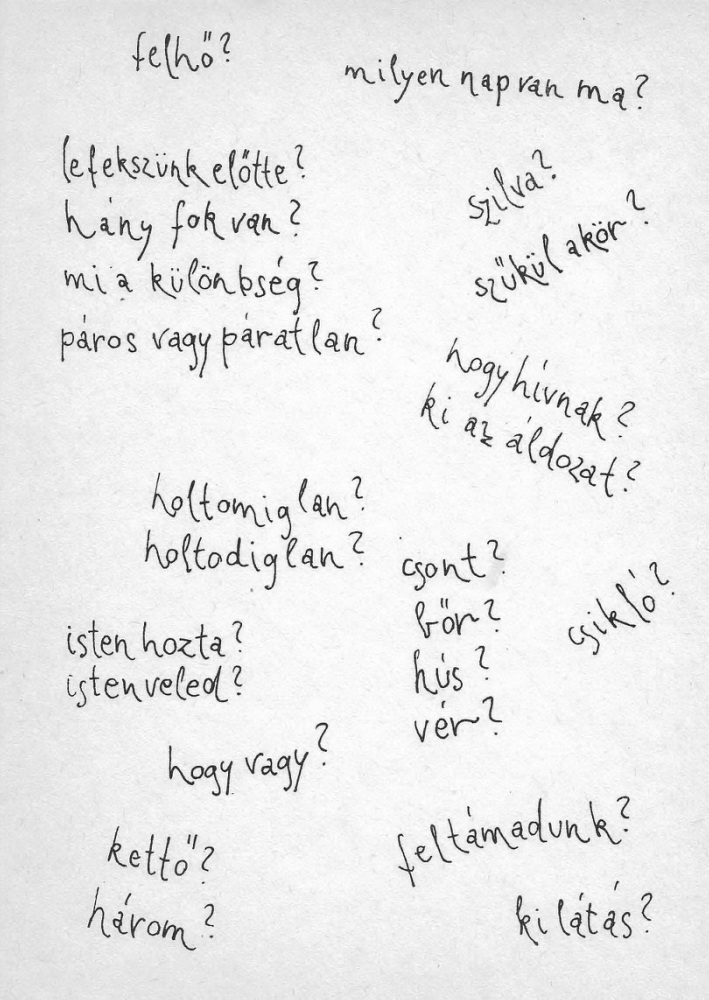 felhő?
milyen nap van ma?
lefekszünk előtte?
hány fok van?
mi a különbség?
páros vagy páratlan?
szilva?
szűkül a kör?
hogy hívnak?
ki az áldozat?
holtomiglan?
holtodiglan?
csont?
bőr?
hús?
vér?
csikló?
isten hozta?
isten veled?
hogy vagy?
kettő?
három?
feltámadunk?
kilátás?